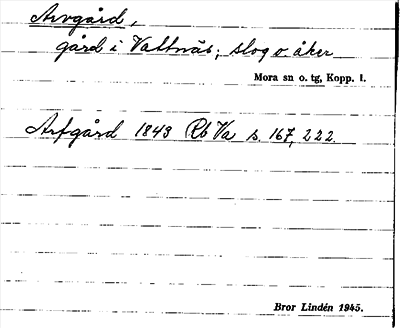 Arvgård,
gård i Vattnäs; slog o. åker
Mora sn o. tg, Kopp. l.
Arfgård 1843 Rb Va s. 167, 222.
Bror Lindén 1945.